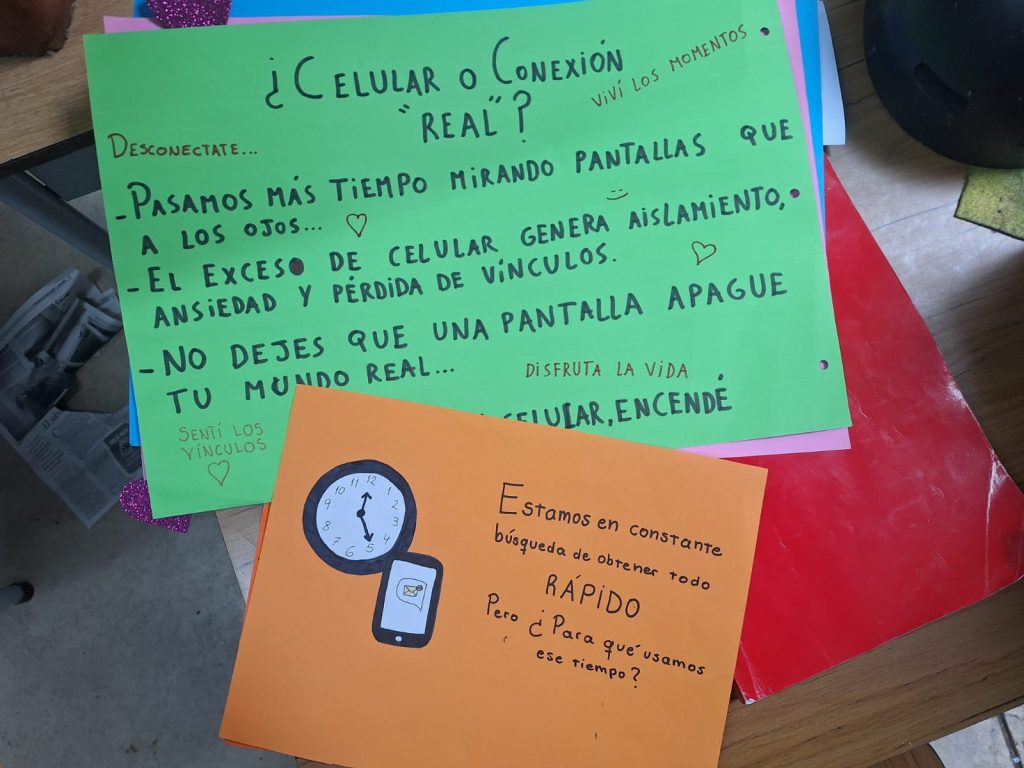 ¿CELULAR O CONEXIÓN
"REAL"?
VIVÍ LOS MOMENTOS
DESCONECTATE...
-PASAMOS MÁS TIEMPO MIRANDO PANTALLAS QUE
A LOS OJOS...
-EL EXCESO DE CELULAR GENERA AISLAMIENTO,
ANSIEDAD Y PÉRDIDA DE VÍNCULOS.
-NO DEJES QUE UNA PANTALLA APAGUE
TU MUNDO REAL...
DISFRUTA LA VIDA
CELULAR, ENCENDÉ
SENTÍ LOS
VÍNCULOS
12
1
2
3
4
5
6
7
8
9
10
11
Estamos en constante
búsqueda de obtener todo
RÁPIDO
Pero ¿Para qué usamos
ese tiempo?